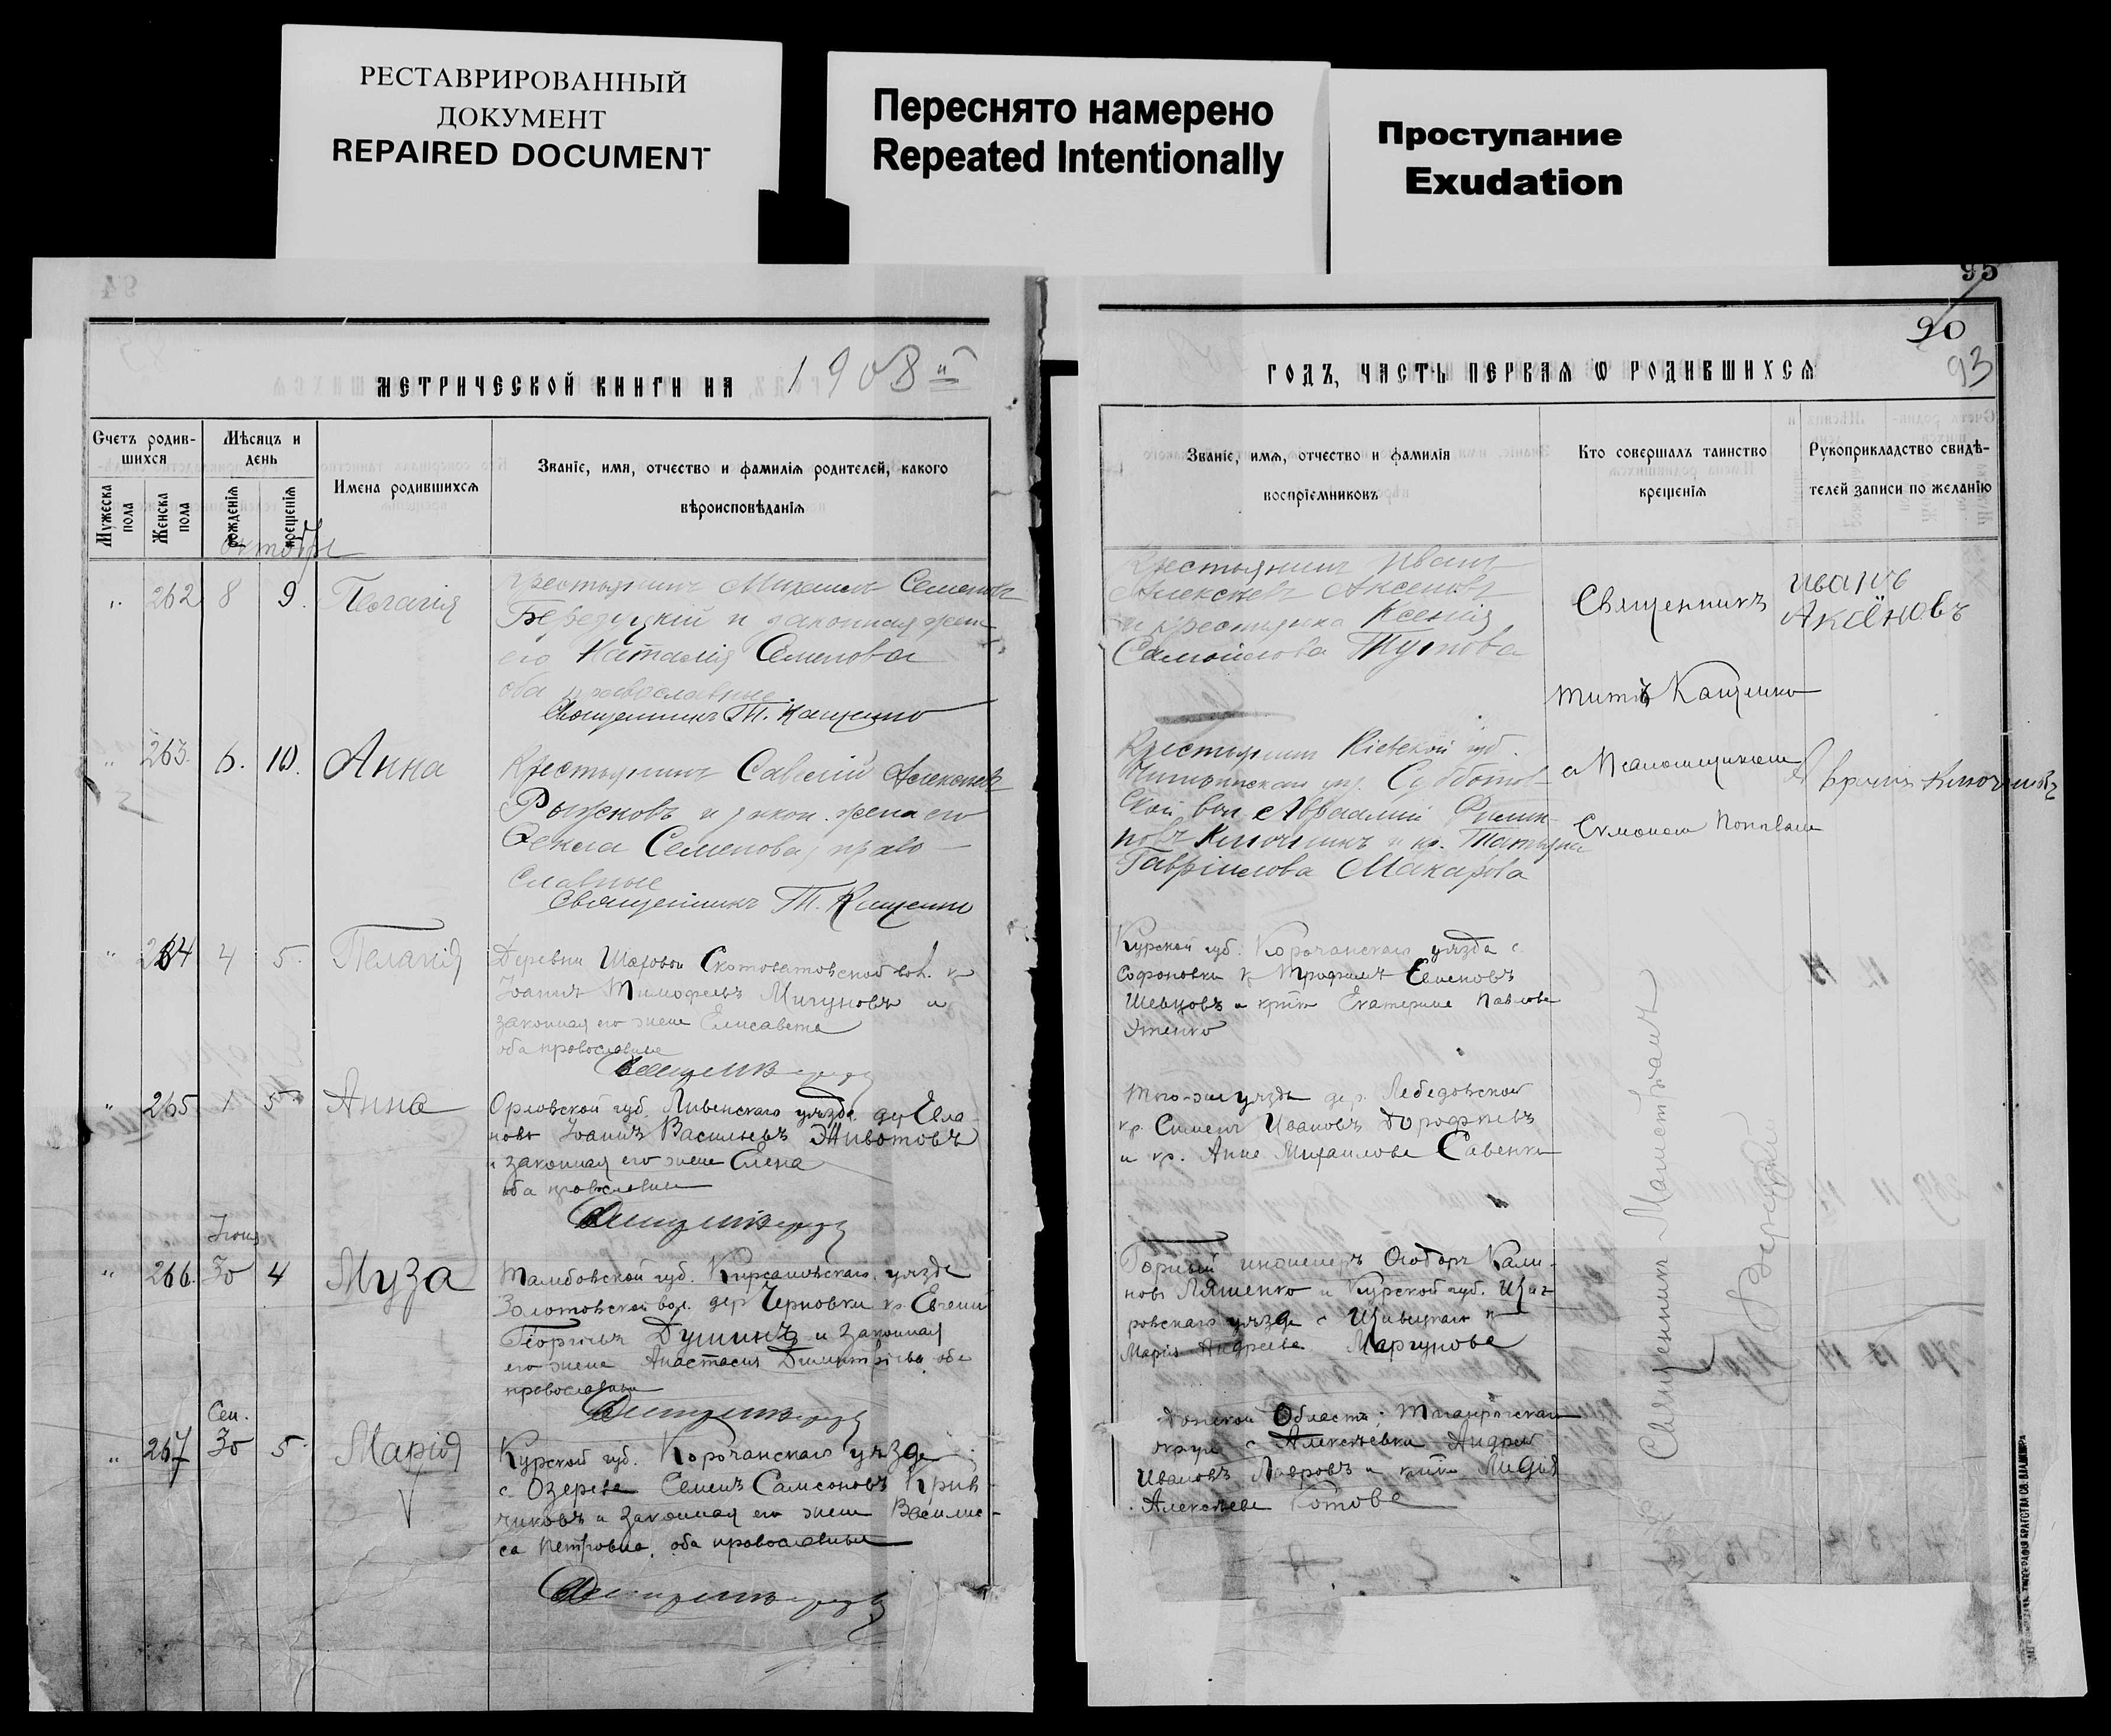 РЕСТАВРИРОВАННЫЙ
ДОКУМЕНТ
REPAIRED DOCUMENT
Переснято намерено
Repeated Intentionally
Проступание
Exudation
94
95
90
93
МЕТРИЧЕСКОЙ КНИГИ НА 1908й
ГОДЪ, ЧАСТЬ ПЕРВАЯ Ѡ РОДИВШИХСЯ
Счетъ родив-
шихся
Мужеска пола
Женска пола
Мѣсяцъ и
день
рожденія
крещенія
Имена родившихся
Званіе, имя, отчество и фамилія родителей, какого
вѣроисповѣданія
Званіе, имя, отчество и фамилія
воспріемниковъ
Кто совершалъ таинство
крещенія
Рукоприкладство свидѣ-
телей записи по желанію
октобрь
262 8 9. Пелагія
Крестьянинъ Михаилъ Семеновъ
Бередуцкій и законная жена
его Наталія Семенова
оба православные
Священникъ Т. Кащенко
Крестьянинъ Иванъ
Алексѣевъ Аксеновъ
и крестьянка Ксенія
Самойлова Тутова
Священникъ
Титъ Кащенко
Иванъ
Аксёновъ
263. 6. 10. Анна
Крестьянинъ Савелій Алексѣевъ
Рыжковъ и закон. жена его
Ѳекла Семенова, право-
славные
Священникъ Т. Кащенко
Крестьянинъ Кіевской губ.
Чигиринскаго уѣз. Субботов-
ской вол. Авраамій Филип-
повъ Ключникъ и кр. Татьяна
Гавріилова Макарова
с Псаломщикомъ
Симоном Поповым
264 4 5. Пелагія
Деревни Шаховой Скотоватовской вол. кр
Іоаннъ Тимофеевъ Мигуновъ и
законная его жена Елисавета
оба православные
Курской губ. Корочанскаго уѣзда с.
Софоновки кр Трофимъ
Шевцовъ и кр-ка Екатерина Павлова
265 1 5. Анна
Орловской губ. Ливенскаго уѣзда дер Евла-
нова Іоаннъ Васильевъ Животовъ
и законная его жена Елена
оба православные
Того-же уѣзда дер. Лебедовской
кр. Симеонъ Ивановъ Дорофеевъ
и кр. Анна Михаилова Савенко
Іюня
266. 30 4 Муза
Тамбовской губ. Кирсановскаго уѣзда
Золотовской вол. дер Черновки кр. Евгеній
Георгіевъ Душинъ и законная
его жена Анастасія Димитріева оба
православные
Горный инженеръ Ѳеодоръ Кали-
новъ Ляшенко и Курской губ. Щиг-
ровскаго уѣзда с
Марія Андреева Маргунова
Сен.
267 30 5 Марія
Курской губ. Корочанскаго уѣзда
с. Озерева Семенъ Самсоновъ Крив-
чиковъ и законная его жена Васили-
са Петровна, оба православные
Донской Области, Таганрогскаго
округа с Алексѣевки Андрей
Ивановъ Лавровъ и кр-ка Лидія
Алексѣева Котова
Священникъ